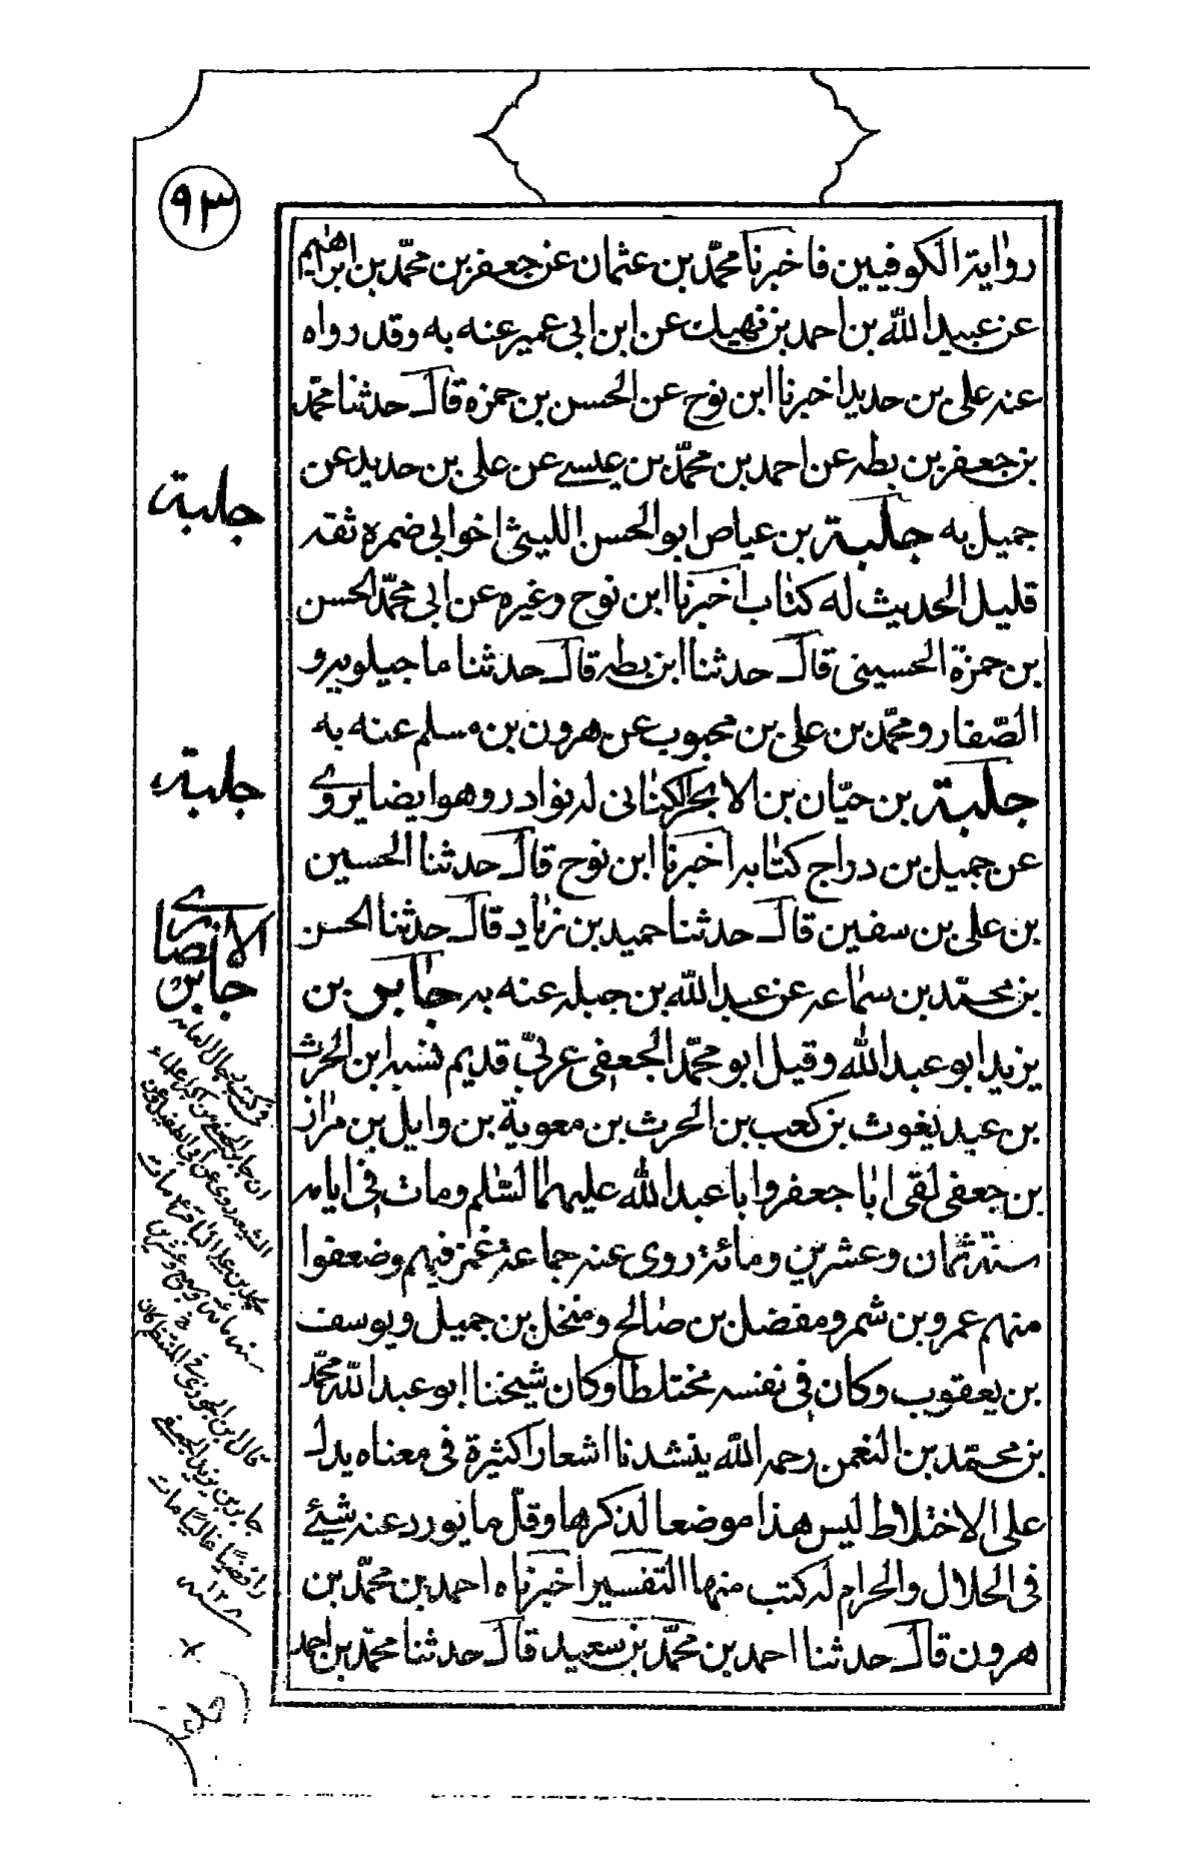 ٩٣
رواية الكوفيين فاخبرنا محمّد بن عثمان عن جعفر بن محمّد بن ابراهيم
عن عبيد الله بن احمد بن نهيك عن ابن ابي عمير عنه به وقد رواه
عنه علي بن حديد اخبرنا ابن نوح عن الحسن بن حمزه قال حدثنا محمّد
بن جعفر بن بطه عن احمد بن محمّد بن عيسے عن علي بن حديد عن
جميل به جلبة بن عياض ابو الحسن الليثي اخو ابي ضمره ثقه
قليل الحديث له كتاب اخبرنا ابن نوح وغيره عن ابي محمّد الحسن
بن حمزة الحسيني قال حدثنا ابن بطه قال حدثنا ماجيلويه و
الصّفار ومحمّد بن علي بن محبوب عن هرون بن مسلم عنه به
جلبة بن حيّان بن الابجر الكناني له نوادر وهو ايضا يروے
عن جميل بن دراج كتابه اخبرنا ابن نوح قال حدثنا الحسين
بن علي بن سفين قال حدثنا حميد بن زياد قال حدثنا الحسن
بن محمّد بن سماعه عن عبد الله بن جبله عنه به جابر بن
يزيد ابو عبد الله وقيل ابو محمّد الجعفي عربيّ قديم نسبه ابن الحرث
بن عبد يغوث بن كعب بن الحرث بن معوية بن وايل بن مرار
بن جعفي لقي ابا جعفر وابا عبد الله عليهما السّلم ومات في ايامه
سنة ثمان وعشرين ومائة روى عنه جماعة غمز فيهم وضعفوا
منهم عمرو بن شمر ومفضل بن صالح ومنخل بن جميل ويوسف
بن يعقوب وكان في نفسه مختلطا وكان شيخنا ابو عبد الله محمّد
بن محمّد بن النعمن رحمه الله ينشدنا اشعارا كثيرة في معناه يدل
على الاختلاط ليس هذا موضعا لذكرها وقلّ ما يورد عنه شيئے
في الحلال والحرام له كتب منها التفسير اخبرناه احمد بن محمّد بن
هرون قال حدثنا احمد بن محمّد بن سعيد قال حدثنا محمّد بن احمد
جلبة
جلبة
الانصارے
جابر
ان جابر الجعفي من اكبر علماء
الشيعة روى عن ابي الطفيل وعن
قال ابن الجوزي في المنتظم كان
جابر بن يزيد الجعفے
رافضيًا غاليًا مات
سنة ١٢٨